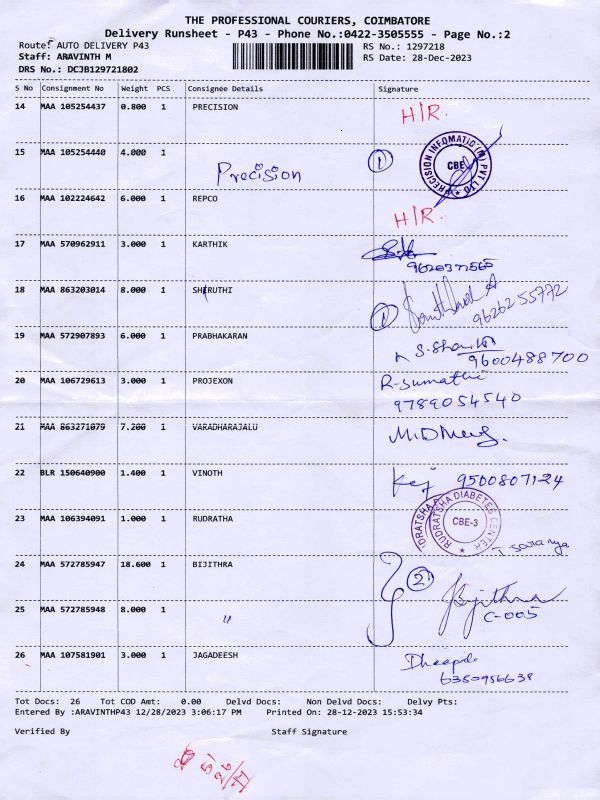 THE PROFESSIONAL COURIERS, COIMBATORE
Delivery Runsheet - P43 - Phone No.:0422-3505555 - Page No.:2
Route: AUTO DELIVERY P43 RS No.: 1297218
Staff: ARAVINTH M RS Date: 28-Dec-2023
DRS No.: DCJB129721802
S No Consignment No Weight PCS Consignee Details Signature
14 MAA 105254437 0.800 1 PRECISION H/R.
15 MAA 105254440 4.000 1 Precision 1 PRECISION INFOMATIC (M) PVT LTD CBE
16 MAA 102224642 6.000 1 REPCO H/R.
17 MAA 570962911 3.000 1 KARTHIK
18 MAA 863203014 8.000 1 SHRUTHI 1 96262 55772
19 MAA 572907893 6.000 1 PRABHAKARAN 9600488700
20 MAA 106729613 3.000 1 PROJEXON R-Sumathi
9789054540
21 MAA 863271079 7.200 1 VARADHARAJALU
22 BLR 150640900 1.400 1 VINOTH 9500807124
23 MAA 106394091 1.000 1 RUDRATHA RUDRATSHA DIABETES CENTER CBE-3 T saranya
24 MAA 572785947 18.600 1 BIJITHRA 2 Bijithra
C-005
25 MAA 572785948 8.000 1 "
26 MAA 107581901 3.000 1 JAGADEESH
6350956638
Tot Docs: 26 Tot COD Amt: 0.00 Delvd Docs: Non Delvd Docs: Delvy Pts:
Entered By :ARAVINTHP43 12/28/2023 3:06:17 PM Printed On: 28-12-2023 15:53:34
Verified By Staff Signature